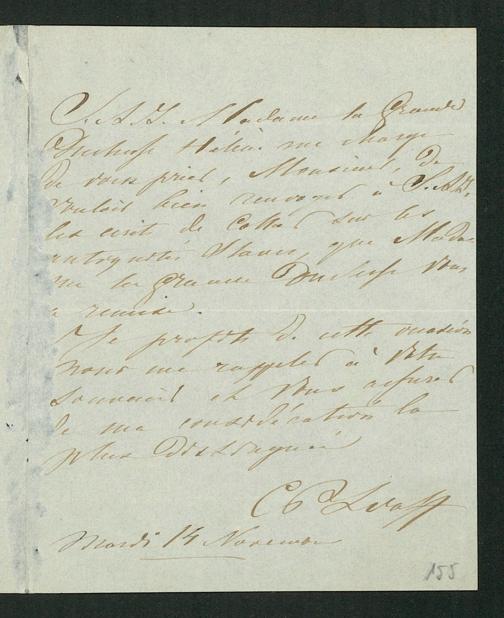 S. A. I. Madame la Grande
Duchesse Hélène me charge
de vous prier, Monsieur, de
vouloir bien renvoyer à S. A. I.
les écrit de sur les
antiquités Slaves, que Mada-
me la Grande Duchesse vous
a remise.
Je profite de cette occasion
pour me rappeler à votre
souvenir et vous assurer
de ma considération la
plus distinguée
Mardi 14 Novembre
155